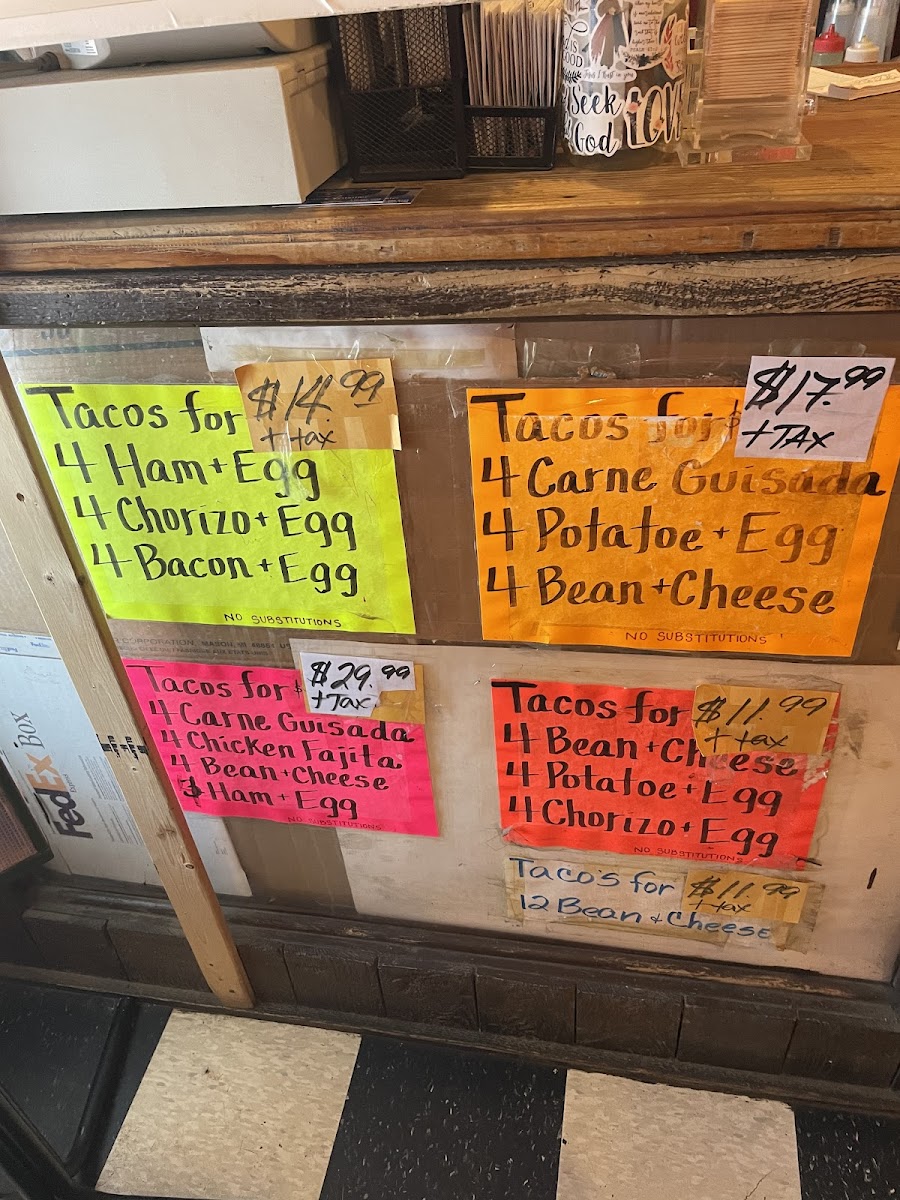 Seek
God
LOVE
Tacos for $14.99
+ tax
4 Ham + Egg
4 Chorizo + Egg
4 Bacon + Egg
NO SUBSTITUTIONS
Tacos for $ $17.99
+ TAX
4 Carne Guisada
4 Potatoe + Egg
4 Bean + Cheese
NO SUBSTITUTIONS
Tacos for $ $29.99
+ Tax
4 Carne Guisada
4 Chicken Fajita
4 Bean + Cheese
Ham + Egg
NO SUBSTITUTIONS
Tacos for $11.99
+ tax
4 Bean + Cheese
4 Potatoe + Egg
4 Chorizo + Egg
NO SUBSTITUTIONS
Taco's for $11.99
+ tax
12 Bean & Cheese
FedEx Box